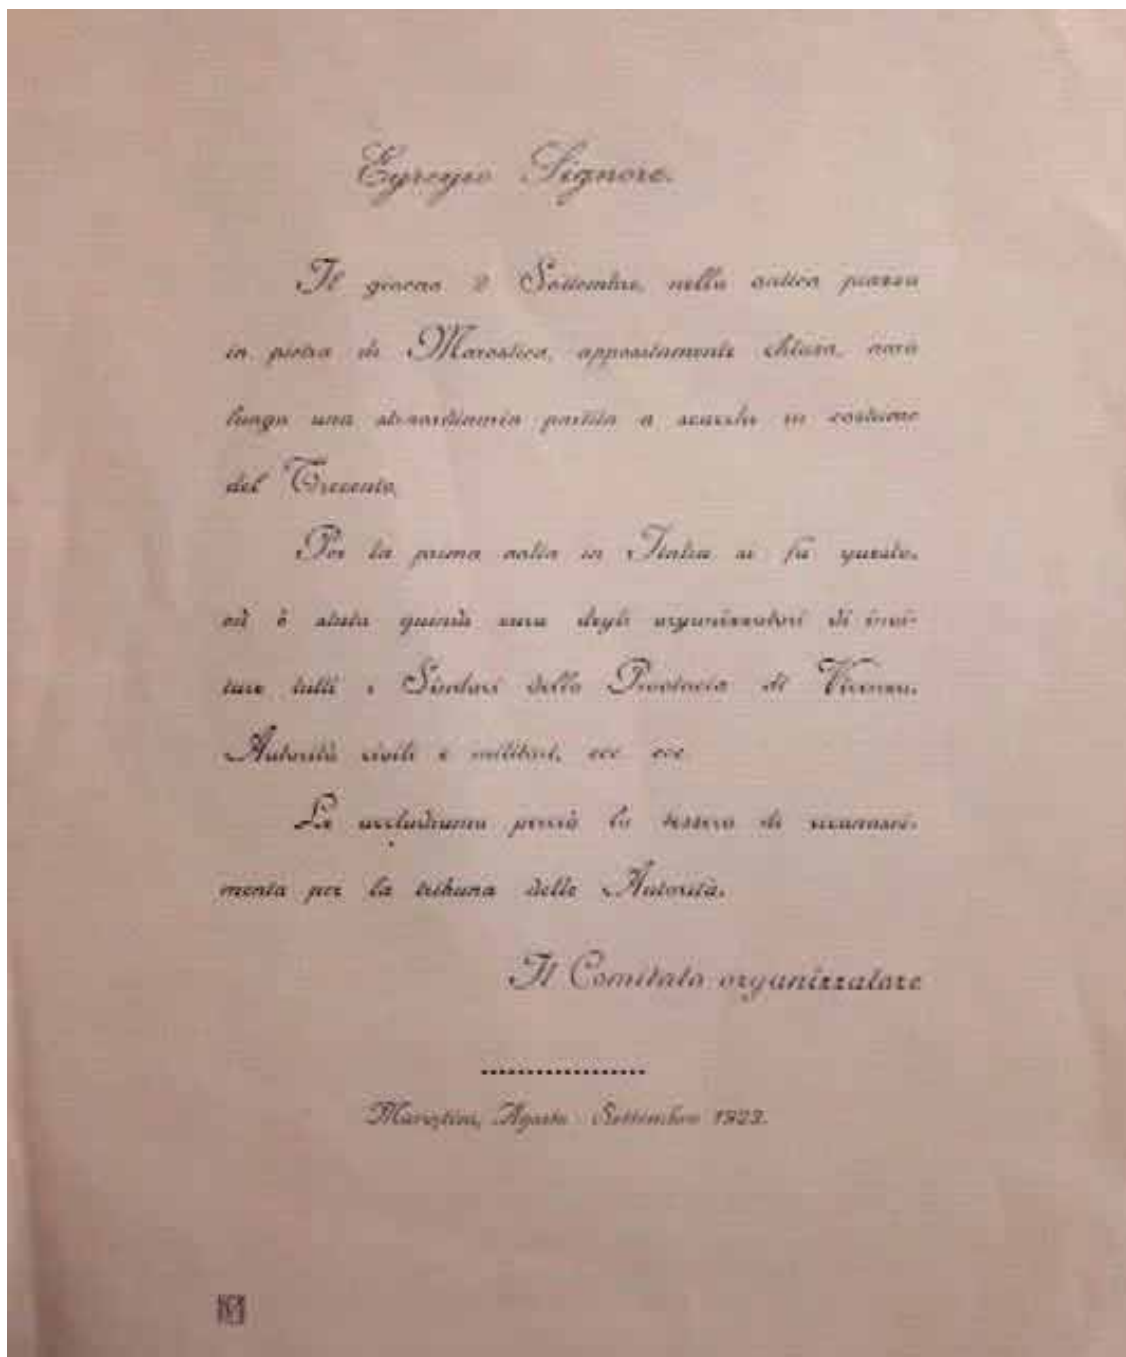 Egregio Signore.
Il giorno 2 Settembre, nella antica piazza
in pietra di Marostica, appositamente chiusa, avrà
luogo una straordinaria partita a scacchi in costume
del Trecento.
Per la prima volta in Italia si fa questo,
ed è stata quindi cura degli organizzatori di invi-
tare tutti i Sindaci della Provincia di Vicenza,
Autorità civili e militari, ecc. ecc.
Le accludiamo perciò la tessera di riconosci-
mento per la tribuna delle Autorità.
Il Comitato organizzatore
Marostica, Agosto - Settembre 1923.